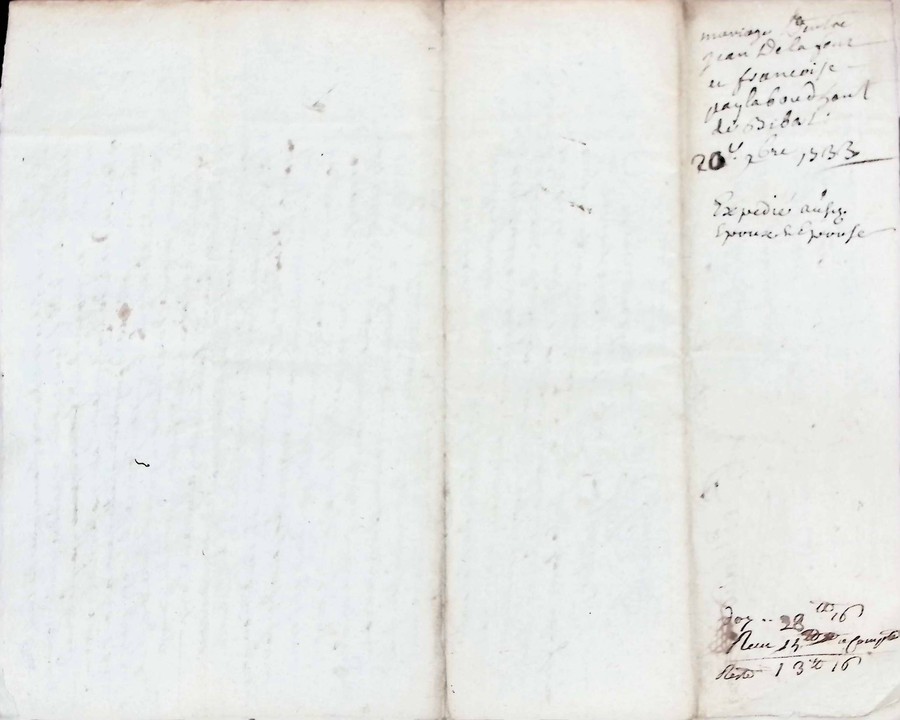 mariage D'entre
jean De la font
et francoise
paylaboudfont
de Bibal
20e xbre 1733
Expedié aux
Epoux & Epouse
doy .. 28 tt 16
Reçu 15 a compte
Reste 13 tt 16